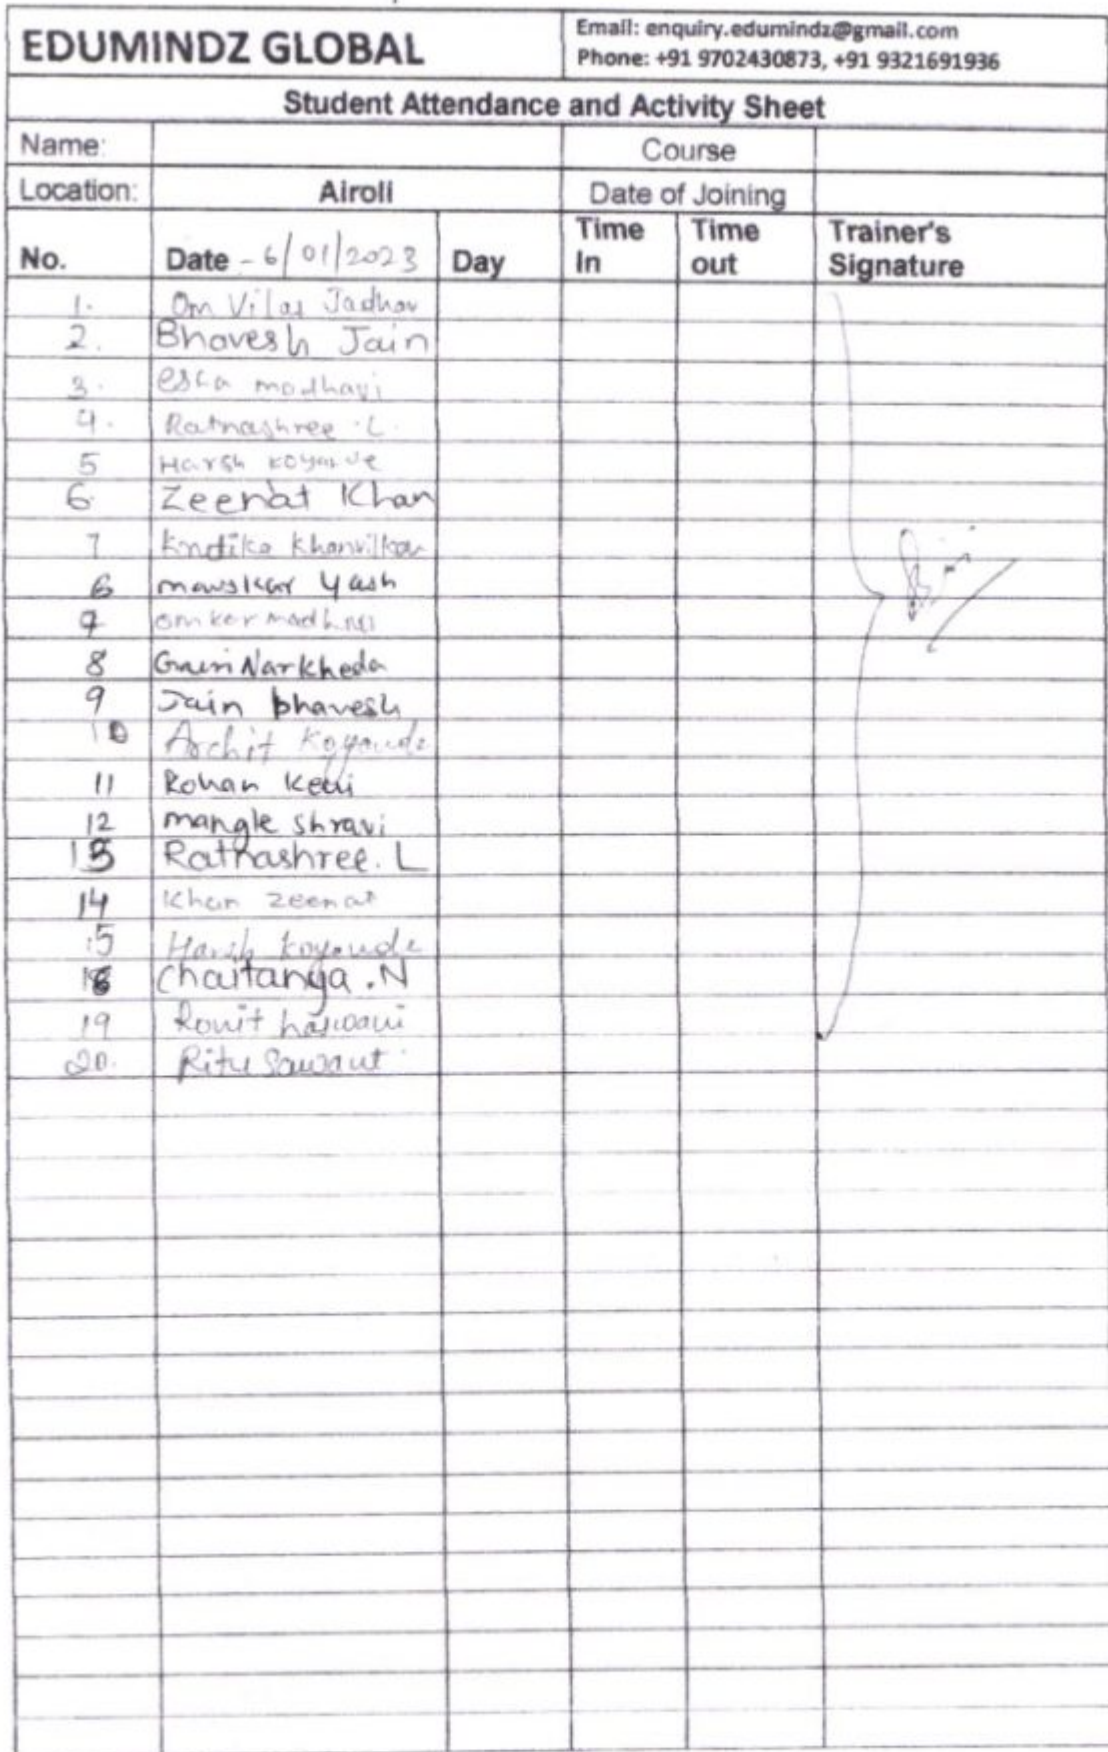 EDUMINDZ GLOBAL
Email: enquiry.edumindz@gmail.com
Phone: +91 9702430873, +91 9321691936
Student Attendance and Activity Sheet
Name: Course
Location: Airoli Date of Joining
No. Date - 6/01/2023 Day Time In Time out Trainer's Signature
1. Om Vilas Jadhav
2. Bhavesh Jain
3. esha madhavi
4. Ratnashree L.
5 Harsh koyande
6. Zeenat Khan
7 Khanvilkar
6 mauskar Yash
7 omkar madhavi
8 Gauri Narkheda
9 Jain bhavesh
10 Archit Koyande
11 Rohan Keni
12 mangle shravi
13 Ratnashree. L
14 Khan zeenat
15 Harsh koyande
16 Chaitanya .N
19 Ronit
20. Ritu Sawant